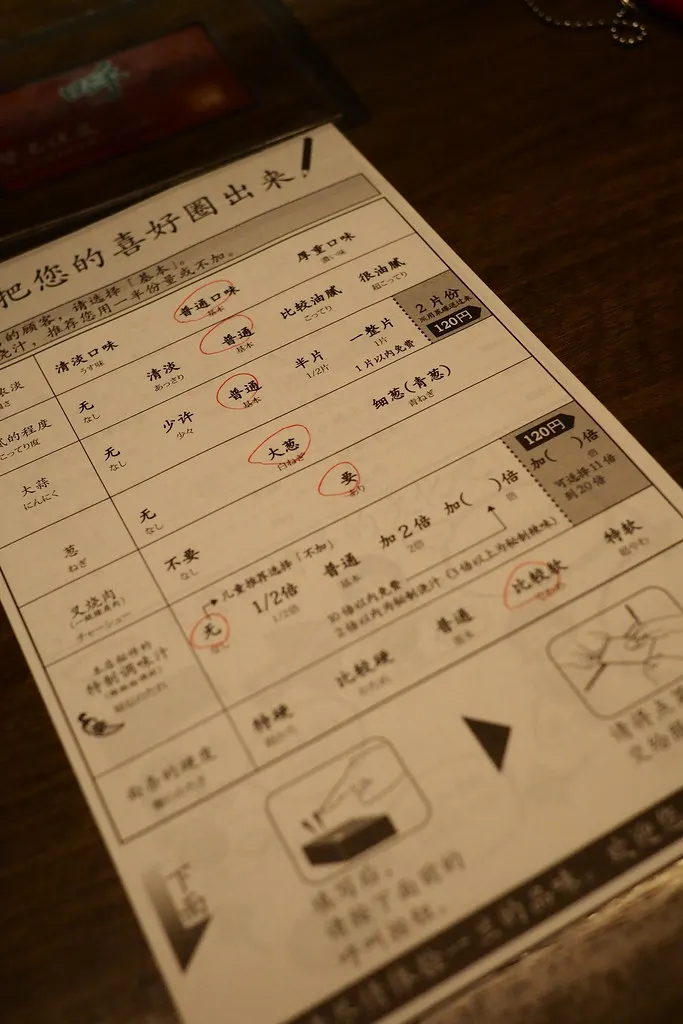 把您的喜好圈出来！
的顾客，请选择「基本」。
浇汁，推荐您用一半份量或不加。
清淡口味 普通口味 厚重口味
うす味 基本 濃い味
无 清淡 普通 比较油腻 很油腻
なし あっさり 基本 こってり 超こってり
こってり度
大蒜 无 少许 普通 半片 一整片 2片份
にんにく なし 少々 基本 1/2片 1片
1片以内免费 120円
葱 无 大葱 细葱(青葱)
ねぎ なし 白ねぎ 青ねぎ
叉烧肉 不要 要
チャーシュー なし あり
特制调味汁 无 1/2倍 普通 加2倍 加( )倍 加( )倍
なし 1/2倍 基本 2倍 倍 倍
儿童推荐选择「不加」
10倍以内免费
120円
可选择11倍
到20倍
面条的硬度 特硬 比较硬 普通 比较软 特软
超かた かため 基本 やわめ 超やわ
下面
填写后，
请按下面前的
呼叫按钮。